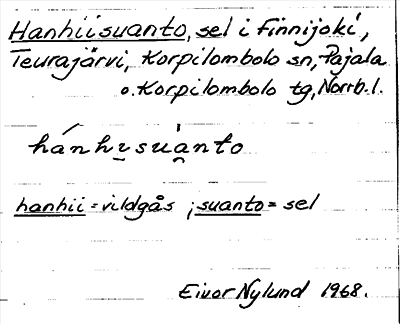 Hanhiisuanto, sel i Finnijoki,
Teurajärvi, Korpilombolo sn, Pajala
o. Korpilombolo tg, Norrb. l.
hánhi̮suȧ̮nto
hanhii = vildgås ; suanto = sel
Eivor Nylund 1968.